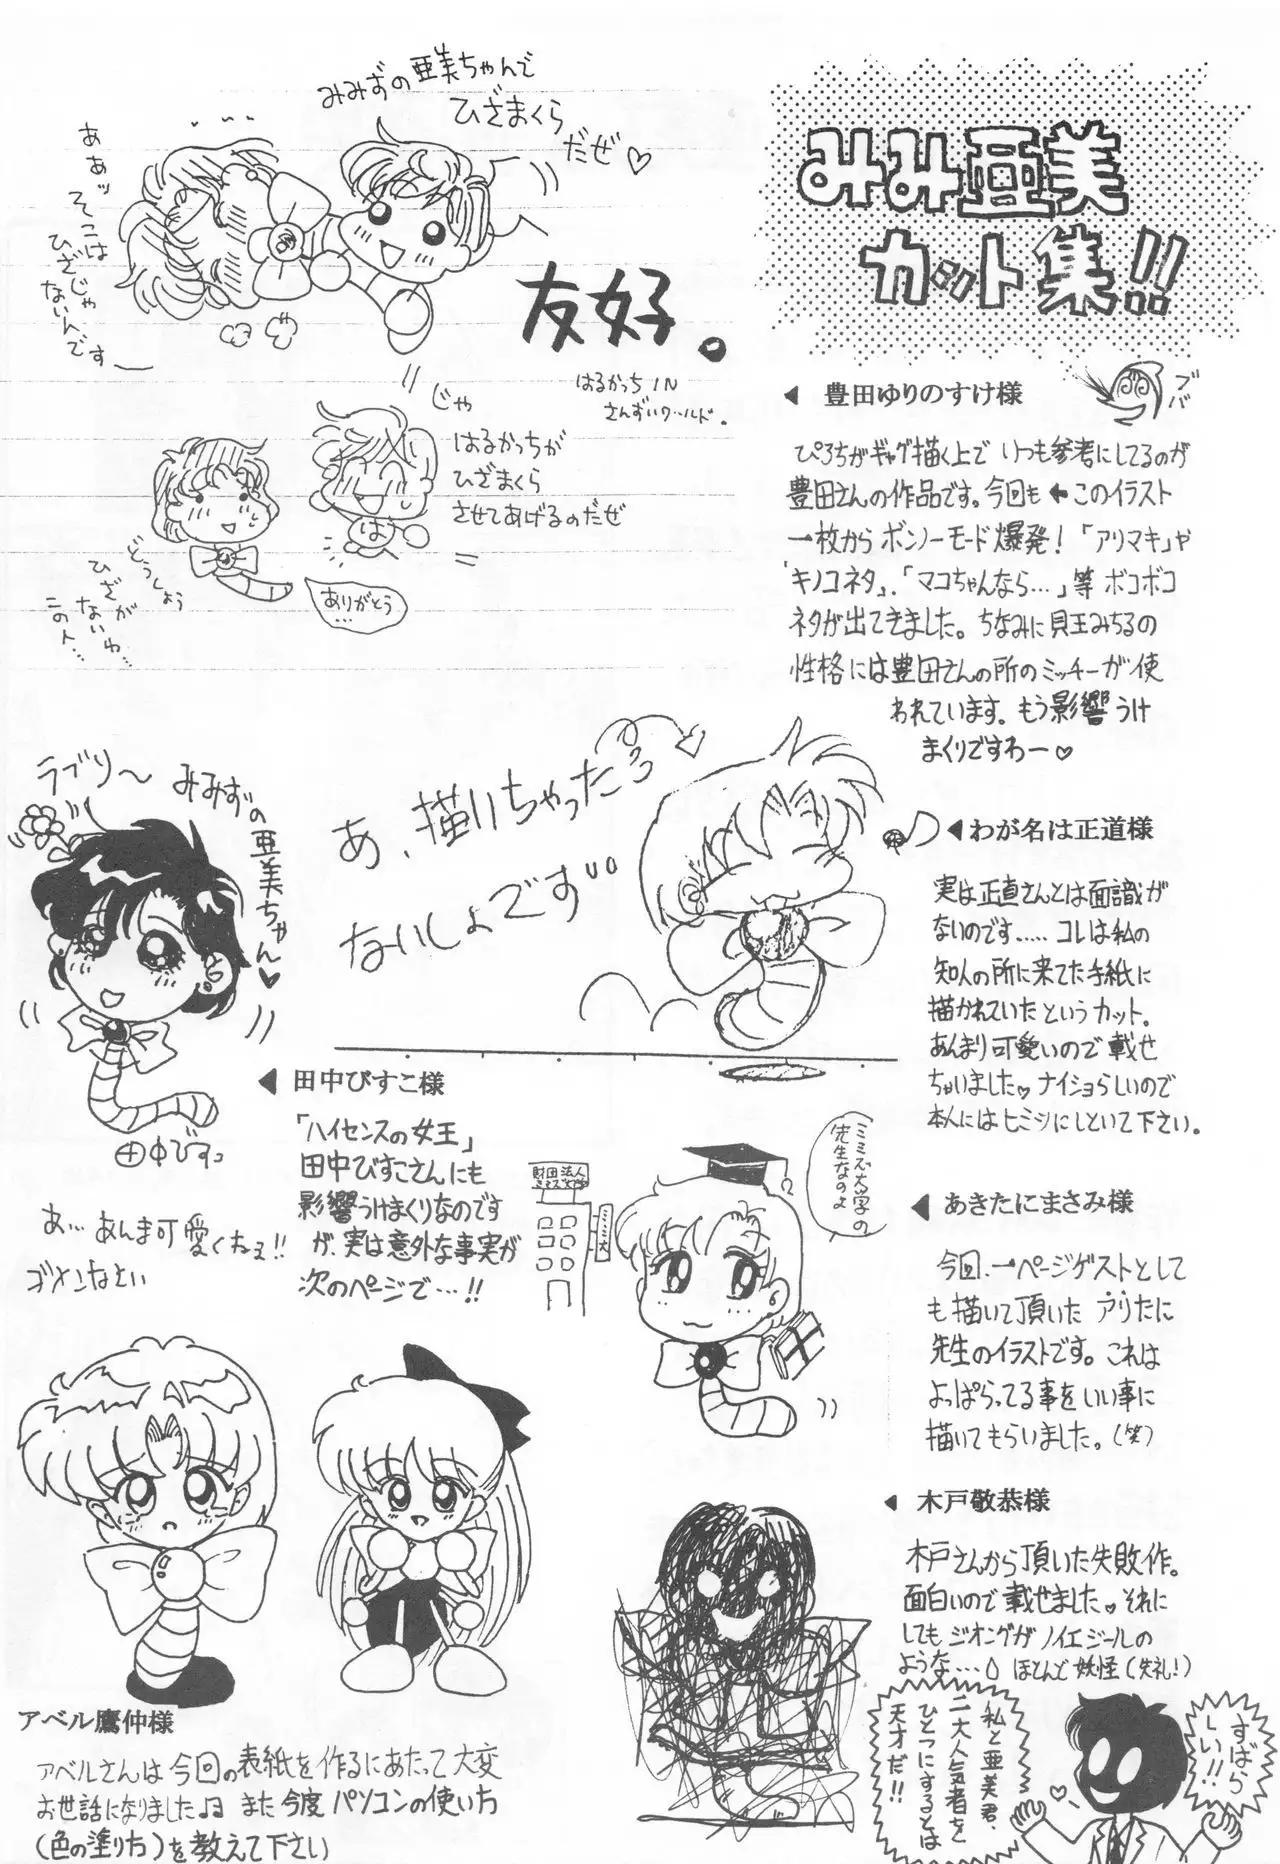 みみ亜美
カット集!!
みみずの亜美ちゃんで
ひざまくら
だぜ♡
あぁッ
そこは
ひざじゃ
ないんです
友好。
はるかっち IN
さんずいワールド。
じゃ
はるかっちが
ひざまくら
させてあげるのだぜ
は
ありがとう
…
どうしよう
ひざが
ないわ…
この人…
◀ 豊田ゆりのすけ様
ブバ
ぴろちがギャグ描く上で いつも参考にしてるのが
豊田さんの作品です。今回も←このイラスト
一枚から ボンノーモード爆発!「アリマキ」や
「キノコネタ」、「マコちゃんなら…」等 ボコボコ
ネタが出てきました。ちなみに貝王みちるの
性格には豊田さんの所のミッチーが使
われています。もう影響うけ
まくりですわー♡
ラブリ〜 みみずの
亜美ちゃん♡
田中びすこ
あ、描いちゃったろ
ないしょです
◀わが名は正道様
実は正直さんとは面識が
ないのです..... コレは私の
知人の所に来てた手紙に
描かれていたというカット。
あんまり可愛いので載せ
ちゃいました♡ナイショらしいので
本人にはヒミツにしといて下さい。
◀ 田中びすこ様
「ハイセンスの女王」
田中びすこさんにも
影響うけまくりなのです
が、実は意外な事実が
次のページで…!!
あ… あんま可愛くねェ!!
ゴメンなとい
財団法人
ミミズ大
ミミズ大学の
先生なのよ
◀ あきたにまさみ様
今回、一ページゲストとして
も描いて頂いた アリたに
先生のイラストです。これは
よっぱらってる事をいい事に
描いてもらいました。(笑)
◀ 木戸敬恭様
木戸さんから頂いた失敗作。
面白いので載せました♡それに
してもジオングがノイエジールの
ような… ほとんど妖怪(失礼!)
私と亜美君、
二大人気者を
ひとつにするとは
天才だ!!
すばら
しい!!
アベル鷹仲様
アベルさんは今回の表紙を作るにあたって大変
お世話になりました♫ また今度パソコンの使い方
(色の塗り方)を教えて下さい